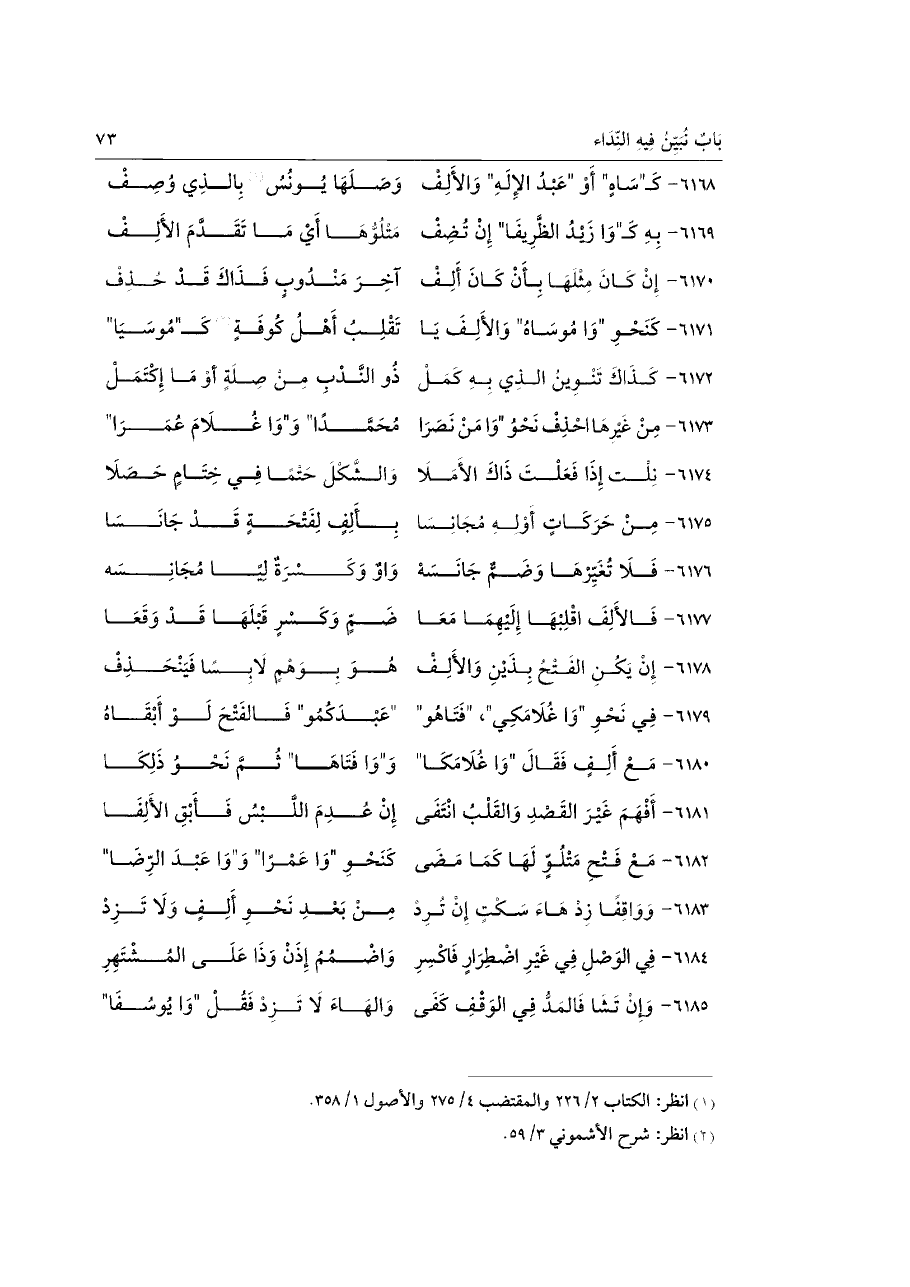 بَابُ نُبَيِّنُ فِيهِ النِّدَاء ٧٣
٦١٦٨- كَـ"سَاهٍ" أَوْ "عَبْدُ الإِلَهِ" وَالأَلِفْ وَصَلَهَا يُونُسُ(١) بِالَّذِي وُصِفْ
٦١٦٩- بِهِ كَـ"وَا زَيْدُ الظَّرِيفَا" إِنْ تُضِفْ مَتْلُوُّهَا أَيْ مَا تَقَدَّمَ الأَلِفْ
٦١٧٠- إِنْ كَانَ مِثْلَهَا بِأَنْ كَانَ أَلِفْ آخِرَ مَنْدُوبٍ فَذَاكَ قَدْ حُذِفْ
٦١٧١- كَنَحْوِ "وَا مُوسَاهُ" وَالأَلِفَ يَا تَقْلِبُ أَهْلُ كُوفَةٍ(٢) كَـ"مُوسَيَا"
٦١٧٢- كَذَاكَ تَنْوِينُ الذِي بِهِ كَمَلْ ذُو النَّدْبِ مِنْ صِلَةٍ أوْ مَا إكْتَمَلْ
٦١٧٣- مِنْ غَيْرِهَا احْذِفْ نَحْوُ "وَا مَنْ نَصَرَا مُحَمَّدًا" وَ"وَا غُلَامَ عُمَرَا"
٦١٧٤- نِلْت إِذَا فَعَلْتَ ذَاكَ الأَمَلَا وَالشَّكْلَ حَتْمًا فِي خِتَامٍ حَصَلَا
٦١٧٥- مِنْ حَرَكَاتٍ أوْلِهِ مُجَانِسَا بِأَلِفٍ لِفَتْحَةٍ قَدْ جَانَسَا
٦١٧٦- فَلَا تُغَيِّرْهَا وَضَمٌّ جَانَسَهْ وَاوٌ وَكَسْرَةٌ لِيًا مُجَانِسَه
٦١٧٧- فَالأَلِفَ اقْلِبْهَا إِلَيْهِمَا مَعَا ضَمٍّ وَكَسْرٍ قَبْلَهَا قَدْ وَقَعَا
٦١٧٨- إِنْ يَكُنِ الفَتْحُ بِذَيْنِ وَالأَلِفْ هُوَ بِوَهْمٍ لَابِسًا فَيَنْحَذِفْ
٦١٧٩- فِي نَحْوِ "وَا غُلَامَكِي"، "فَتَاهُو" "عَبْدَكُمُو" فَالفَتْحَ لَوْ أَبْقَاهُ
٦١٨٠- مَعْ أَلِفٍ فَقَالَ "وَا غُلَامَكَا" وَ"وَا فَتَاهَا" ثُمَّ نَحْوُ ذَلِكَا
٦١٨١- أَفْهَمَ غَيْرَ القَصْدِ وَالقَلْبُ انْتَفَى إِنْ عُدِمَ اللَّبْسُ فَأَبْقِ الأَلِفَا
٦١٨٢- مَعْ فَتْحِ مَتْلُوٍّ لَهَا كَمَا مَضَى كَنَحْوِ "وَا عَمْرًا" وَ"وَا عَبْدَ الرِّضَا"
٦١٨٣- وَوَاقِفًا زِدْ هَاءَ سَكْتٍ إِنْ تُرِدْ مِنْ بَعْدِ نَحْوِ أَلِفٍ وَلَا تَزِدْ
٦١٨٤- فِي الوَصْلِ فِي غَيْرِ اضْطِرَارٍ فَاكْسِرِ وَاضْمُمْ إِذَنْ وَذَا عَلَى المُشْتَهِرِ
٦١٨٥- وَإِنْ تَشَا فَالمَدُّ فِي الوَقْفِ كَفَى وَالهَاءَ لَا تَزِدْ فَقُلْ "وَا يُوسُفَا"
(١) انظر: الكتاب ٢/ ٢٢٦ والمقتضب ٤/ ٢٧٥ والأصول ١/ ٣٥٨.
(٢) انظر: شرح الأشموني ٣/ ٥٩.